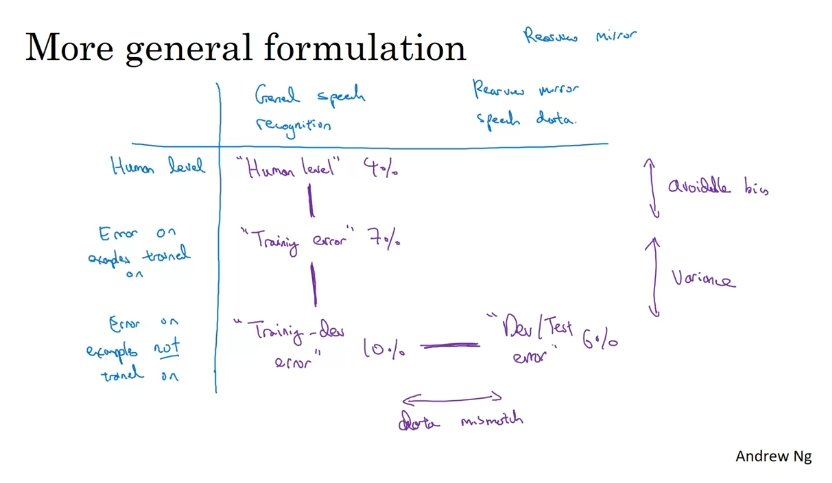 More general formulation
Rearview mirror
General speech
recognition
Rearview mirror
speech data.
Human level
"Human level" 4%
avoidable bias
Error on
examples trained
on
"Training error" 7%
Variance
Error on
examples not
trained on
"Training-dev
error" 10%
"Dev/Test
error" 6%
data mismatch
Andrew Ng